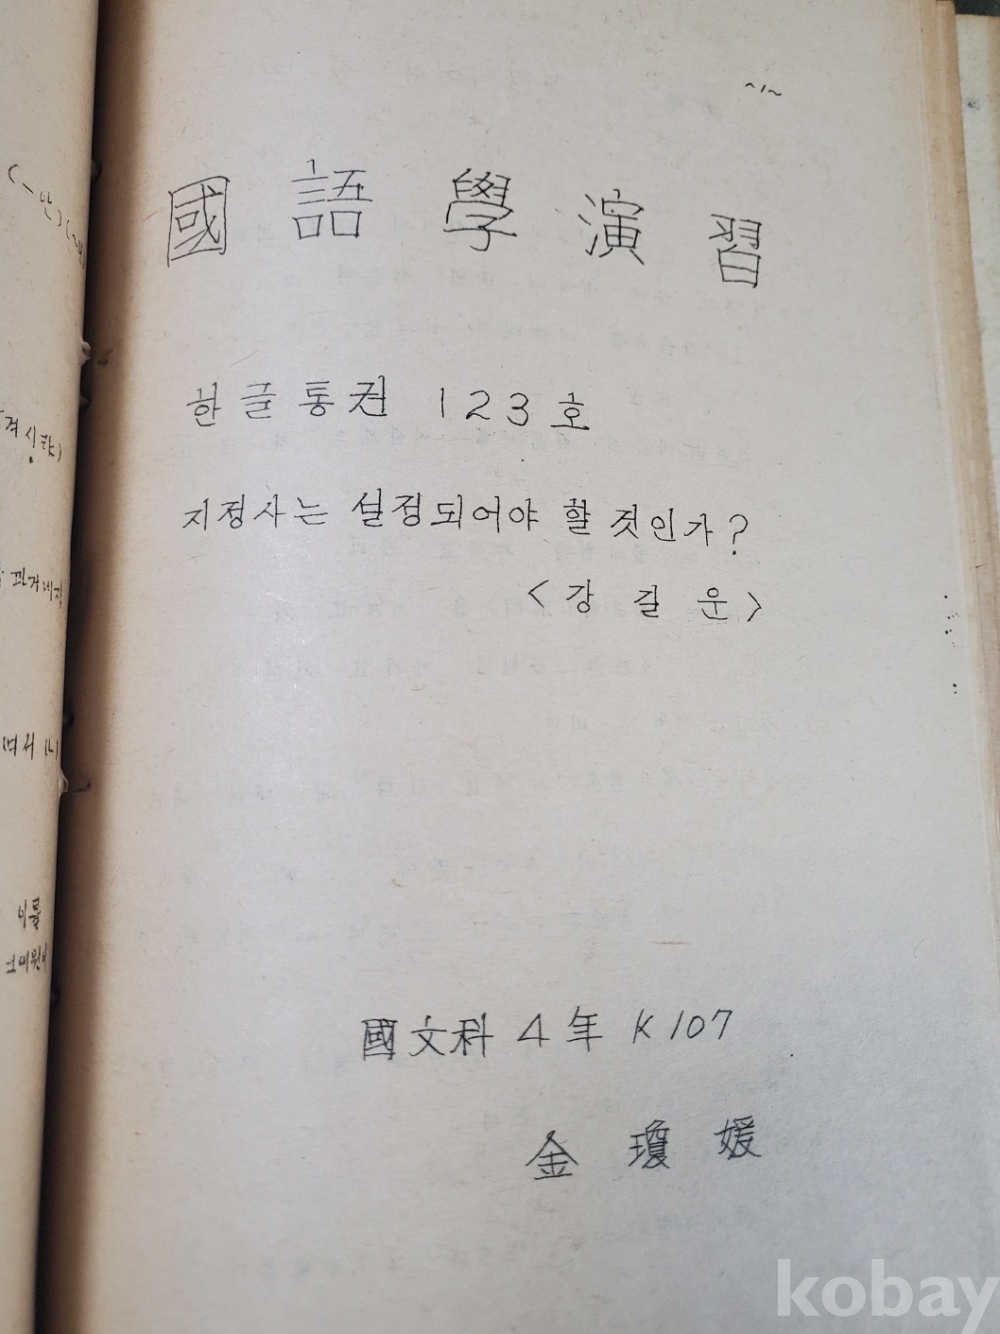 ~1~
國語學演習
한글통권 123호
지정사는 설정되어야 할 것인가?
<강길운>
國文科 4年 K107
金瓊媛
이를
kobay